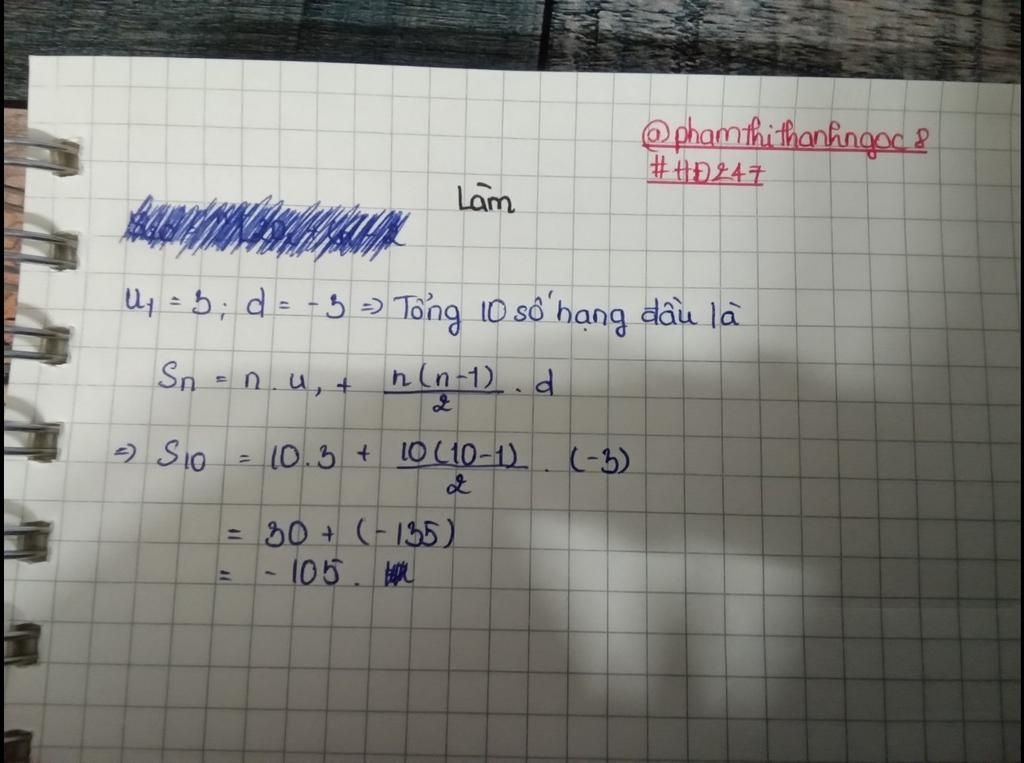 @phamthithanhngoc8
#HĐ247
Làm
u₁ = 3; d = -3 => Tổng 10 số hạng đầu là
Sn = n.u₁ + n(n-1)/2 . d
=> S10 = 10.3 + 10(10-1)/2 . (-3)
= 30 + (-135)
= -105.